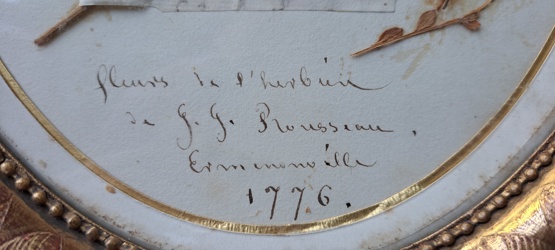 fleurs de l'herbier
de J. J. Rousseau.
Ermenonville
1776.